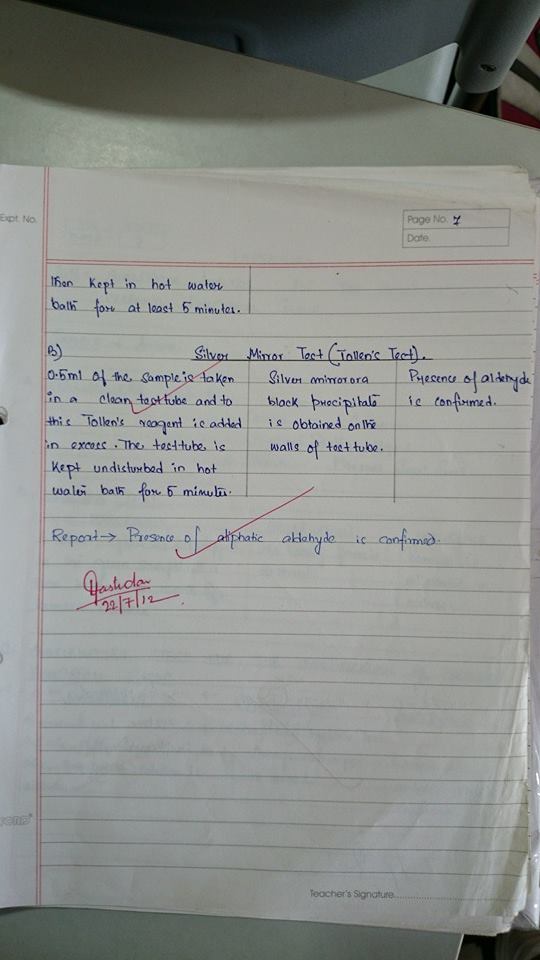 Expt. No.
Page No. 7
Date.
then kept in hot water
bath for at least 5 minutes.
B) Silver Mirror Test (Tollen's Test).
0.5ml of the sample is taken
in a clean testtube and to
this Tollen's reagent is added
in excess. The testtube is
kept undisturbed in hot
water bath for 5 minutes.
Silver mirror or a
black precipitate
is obtained on the
walls of testtube.
Presence of aldehyde
is confirmed.
Report → Presence of aliphatic aldehyde is confirmed.
22/7/12
Teacher's Signature